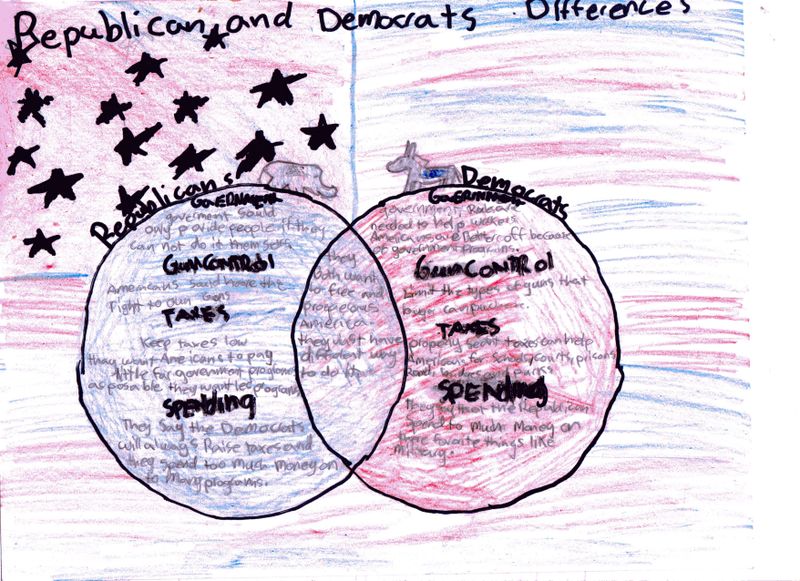 Republican and Democrats Differences
Republicans
GOVERNMENT
goverment sould
only provide people if they
can not do it themselfs
Gun CONTROl
Americans sould have the
right to own Guns
TAXES
Keep taxes low
they want Americans to pay
little for government
as posable they want
SPENding
They Say the Democrats
will always Raise taxes and
they spend too much Money on
to Many programs.
they
both want
to free and
prosperous
America
they Just have
different way
to do it
Democrats
GOVERNMENT
government Rules are
needed to help workers
Americans are Better off because
of government Programs.
Gun CONTROl
Limit the types of guns that
TAXES
properly seant taxes can help
Americans for Schools, courts, prisons
Roads, and parks
SPENding
They say that the Republican
Spend to much Money on
there favorite things like
Military.